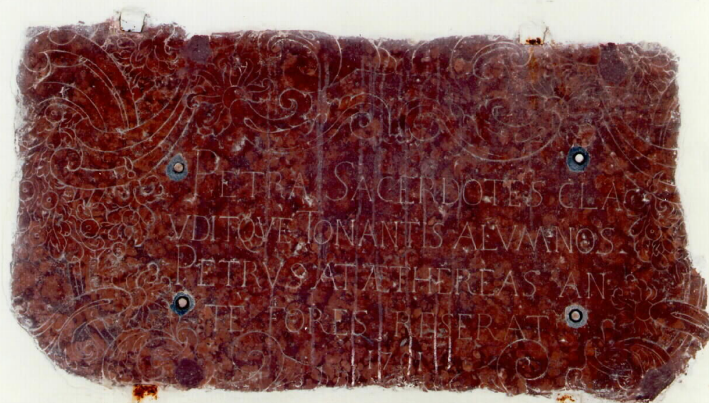 PETRA SACERDOTES CLA
VDITQVE TONANTIS ALVMNOS
PETRVS AT ÆTHEREAS AN
TE FORES RESERAT